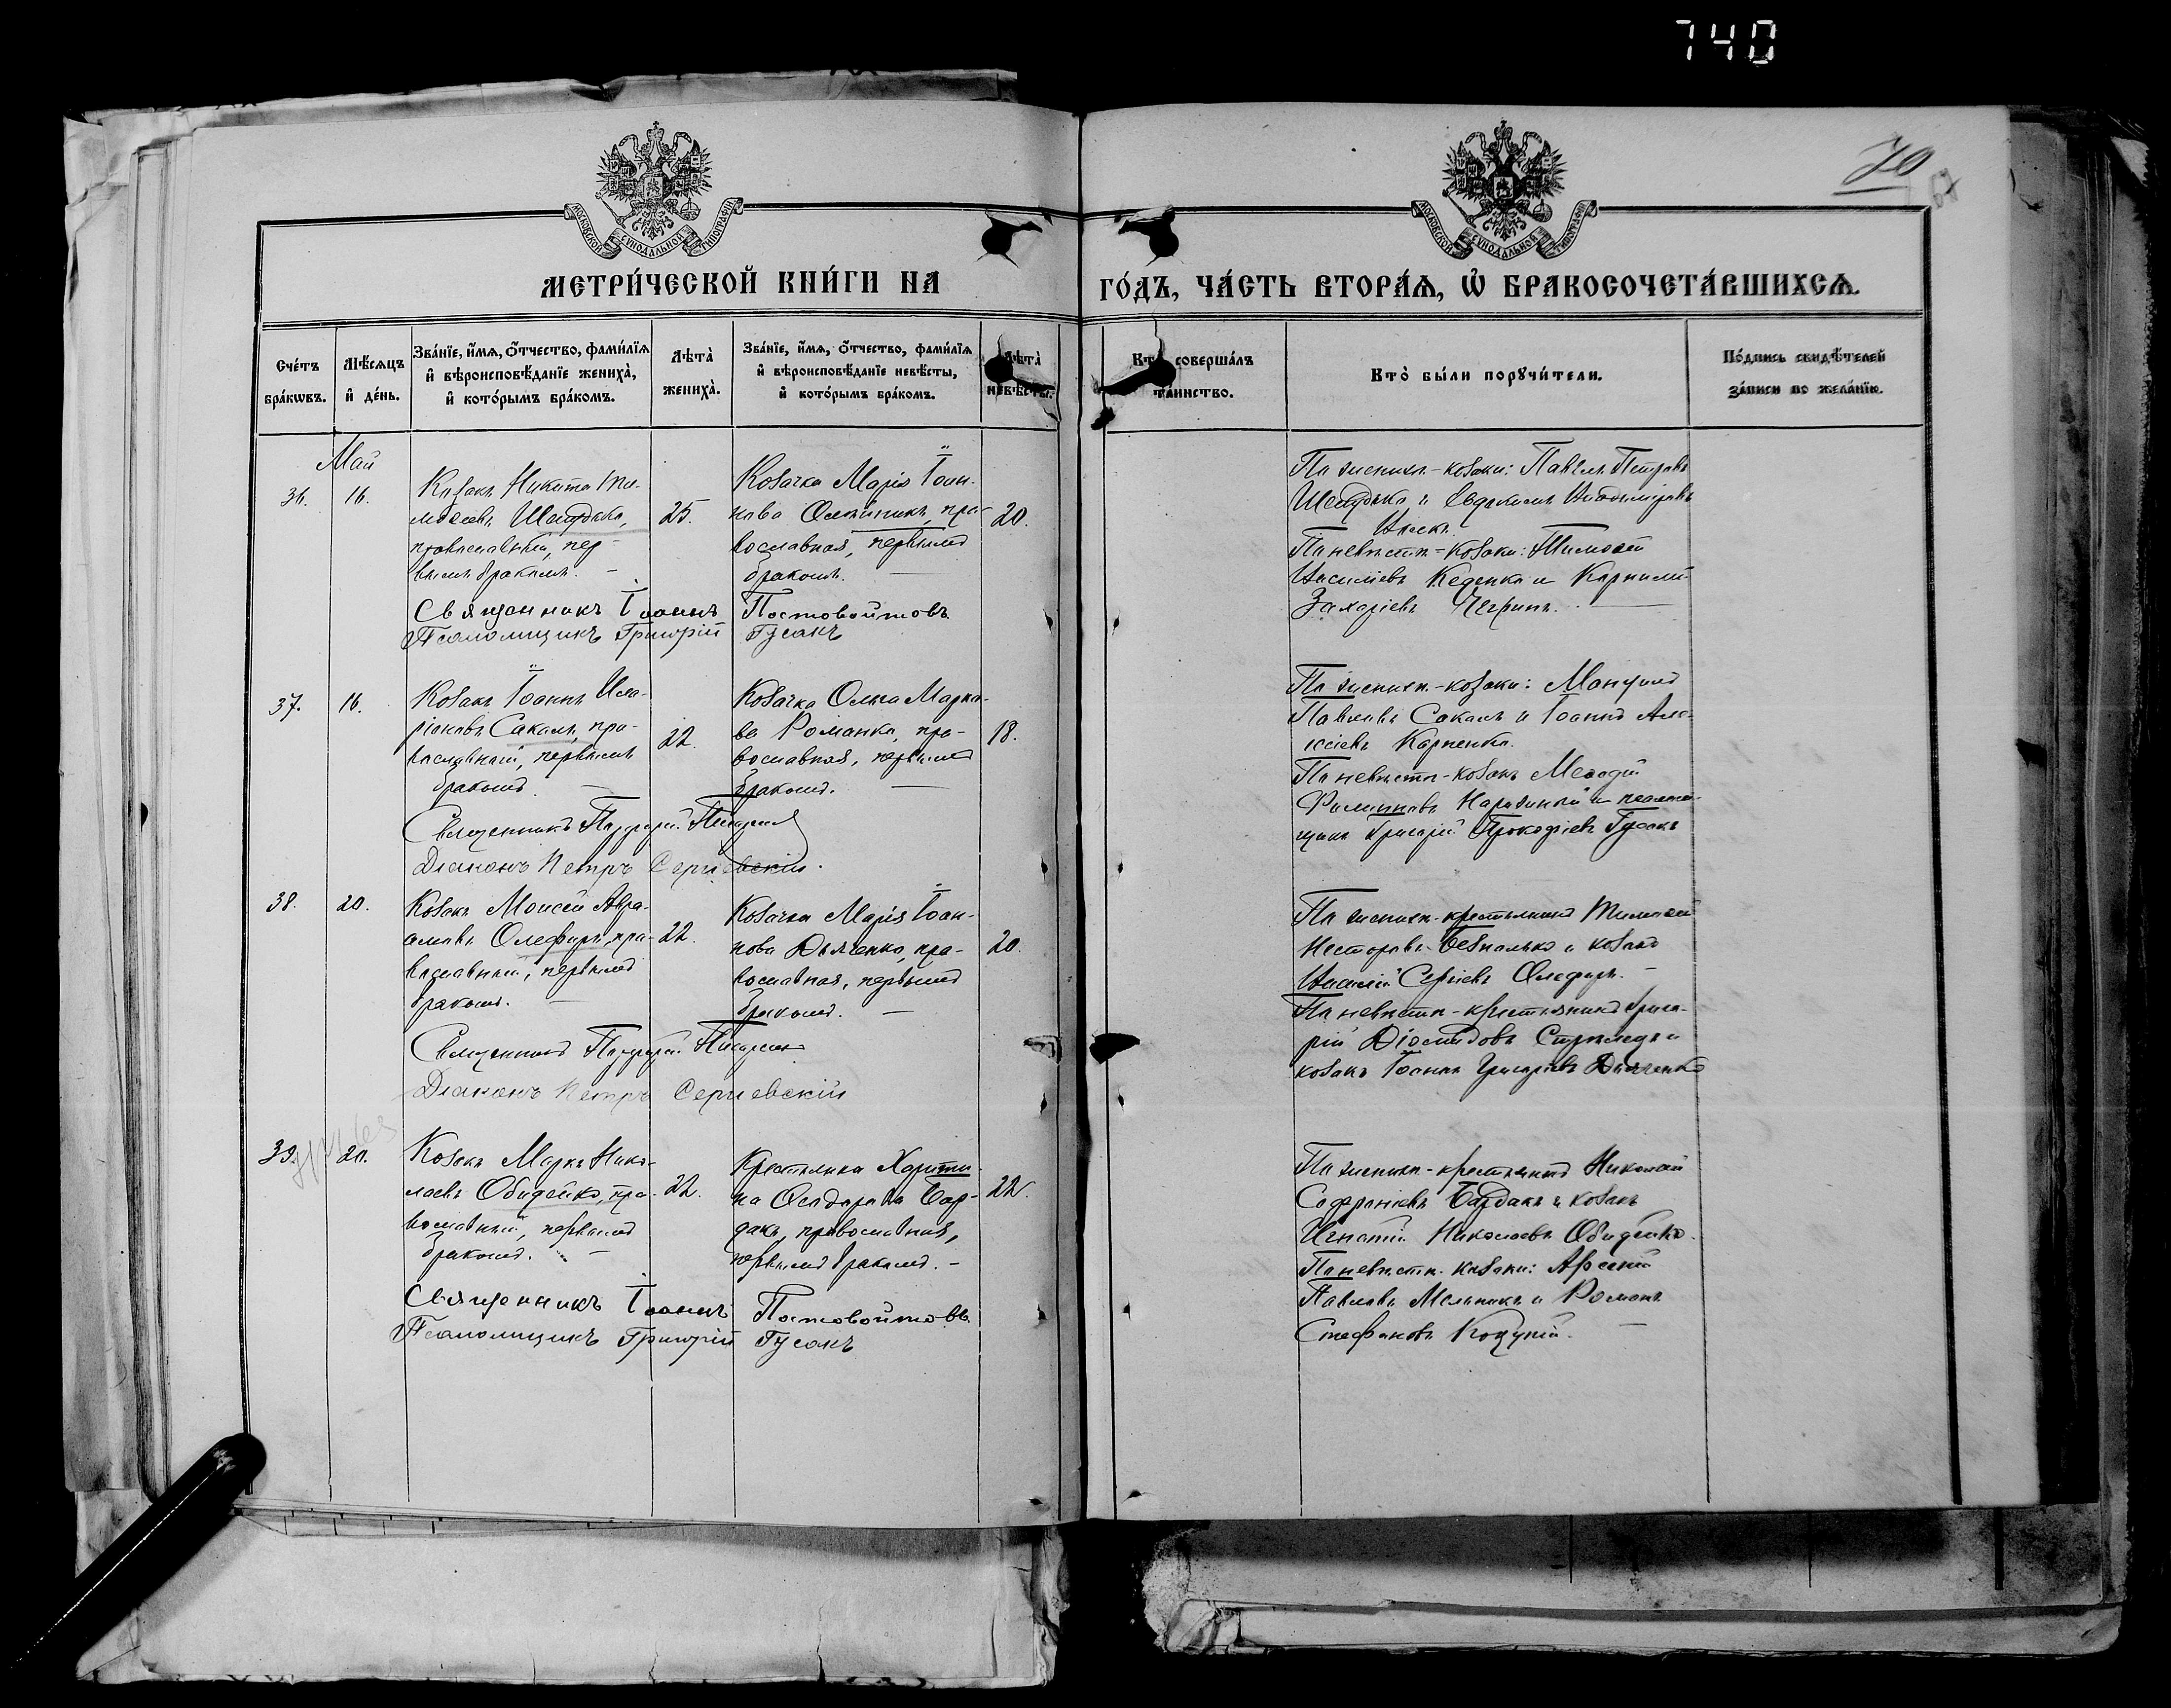 740
70
МОСКОВСКОЙ СѴНОДАЛЬНОЙ ТИПОГРАФІИ
МОСКОВСКОЙ СѴНОДАЛЬНОЙ ТИПОГРАФІИ
МЕТРИ́ЧЕСКОЙ КНИ́ГИ НА
ГО́ДЪ, ЧА́СТЬ ВТОРА́Ѧ, Ѡ҆ БРАКОСОЧЕТА́ВШИХСѦ.
Сче́тъ бра́кѡвъ.
Мѣ́сѧцъ и҆ де́нь.
Зва́нїе, и҆́мѧ, о҆́тчество, фами́лїѧ
и҆ вѣроисповѣ́данїе жениха̀,
и҆ кото́рымъ бра́комъ.
Лѣта̀ жениха̀.
Зва́нїе, и҆́мѧ, о҆́тчество, фами́лїѧ
и҆ вѣроисповѣ́данїе невѣ́сты,
и҆ кото́рымъ бра́комъ.
Лѣта̀ невѣ́сты.
Кто̀ соверша́лъ та́инство.
Кто̀ бы́ли порꙋчи́тели.
По́дпись свидѣ́телей
за́писи по жела́нїю.
Май
36. 16.
Козакъ Никита Ти-
моѳеевъ
православный, пер-
вымъ бракомъ. —
25.
Козачка Марія Іоан-
нова Олейникъ, пра-
вославная, первымъ
бракомъ. —
20.
Священникъ Іоаннъ Постовойтовъ
Псаломщикъ Григорій Гусакъ
По женихѣ - козаки: Павелъ Петровъ
и Евдокимъ
По невѣстѣ - козаки: Тимоѳей
Василіевъ и Корнилій
Захаріевъ
37. 16.
Козакъ Іоаннъ Ила-
ріоновъ Сакалъ, пра-
вославный, первымъ
бракомъ. —
22.
Козачка Ольга Марко-
ва Романко, пра-
вославная, первымъ
бракомъ. —
18.
Священникъ Порфирій
Діаконъ Петръ Сергіевскій.
По женихѣ - козаки:
Павловъ Сакалъ и Іоаннъ Але-
ксіевъ Карпенко.
По невѣстѣ - козакъ Меѳодій
Филипповъ и псалом-
щикъ Григорій Прокофіевъ Гусакъ
38. 20.
Козакъ Моисей Авра-
амовъ Олефиръ, пра-
вославный, первымъ
бракомъ. —
22.
Козачка Марія Іоан-
нова Дьяченко, пра-
вославная, первымъ
бракомъ. —
20.
Священникъ Порфирій
Діаконъ Петръ Сергіевскій
По женихѣ - крестьянинъ Тимоѳей
Несторовъ Безпалько и козакъ
Василій Сергіевъ Олефиръ. —
По невѣстѣ - крестьянинъ Григо-
рій Діомидовъ и
козакъ Іоаннъ Григоріевъ Дьяченко
39. 20.
Козакъ Маркъ Нико-
лаевъ Обидейко, пра-
вославный, первымъ
бракомъ. —
22.
Крестьянка Харити-
на Ѳеодорова Бар-
дакъ, православная,
первымъ бракомъ. —
22.
Священникъ Іоаннъ Постовойтовъ
Псаломщикъ Григорій Гусакъ
По женихѣ - крестьянинъ Николай
Софроніевъ Бардакъ и козакъ
Игнатій Николаевъ Обидейко.
По невѣстѣ - козаки: Арсеній
Павловъ Мельникъ и Романъ
Стефановъ